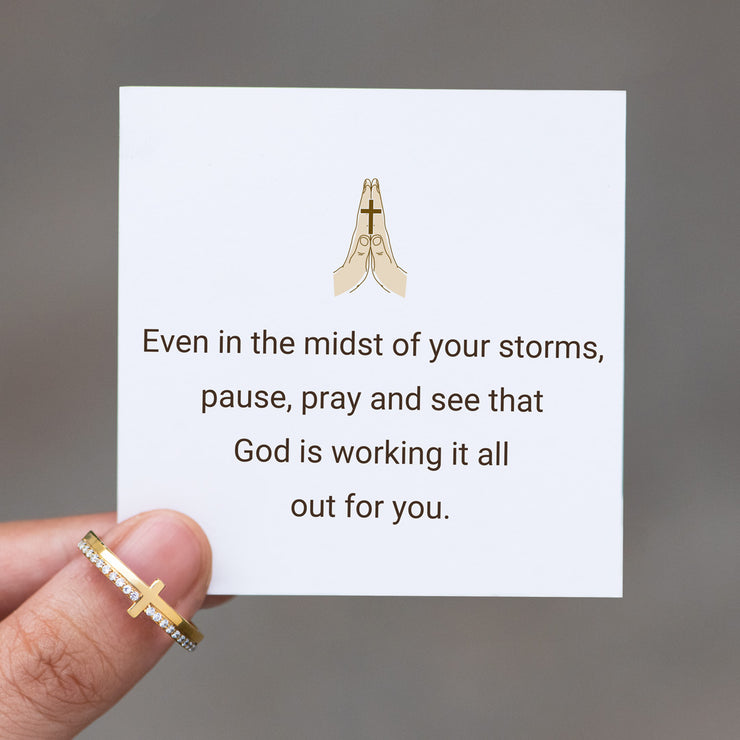 Even in the midst of your storms,
pause, pray and see that
God is working it all
out for you.